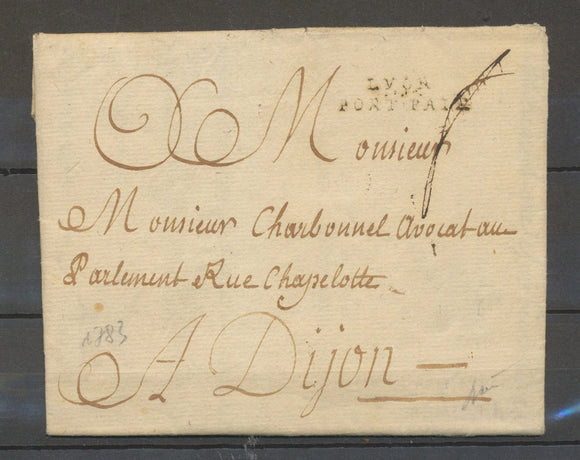 LYON
PORT PAYÉ
Monsieur
Monsieur Charbonnel Avocat au
Parlement Rue Chapelotte
A Dijon
1783